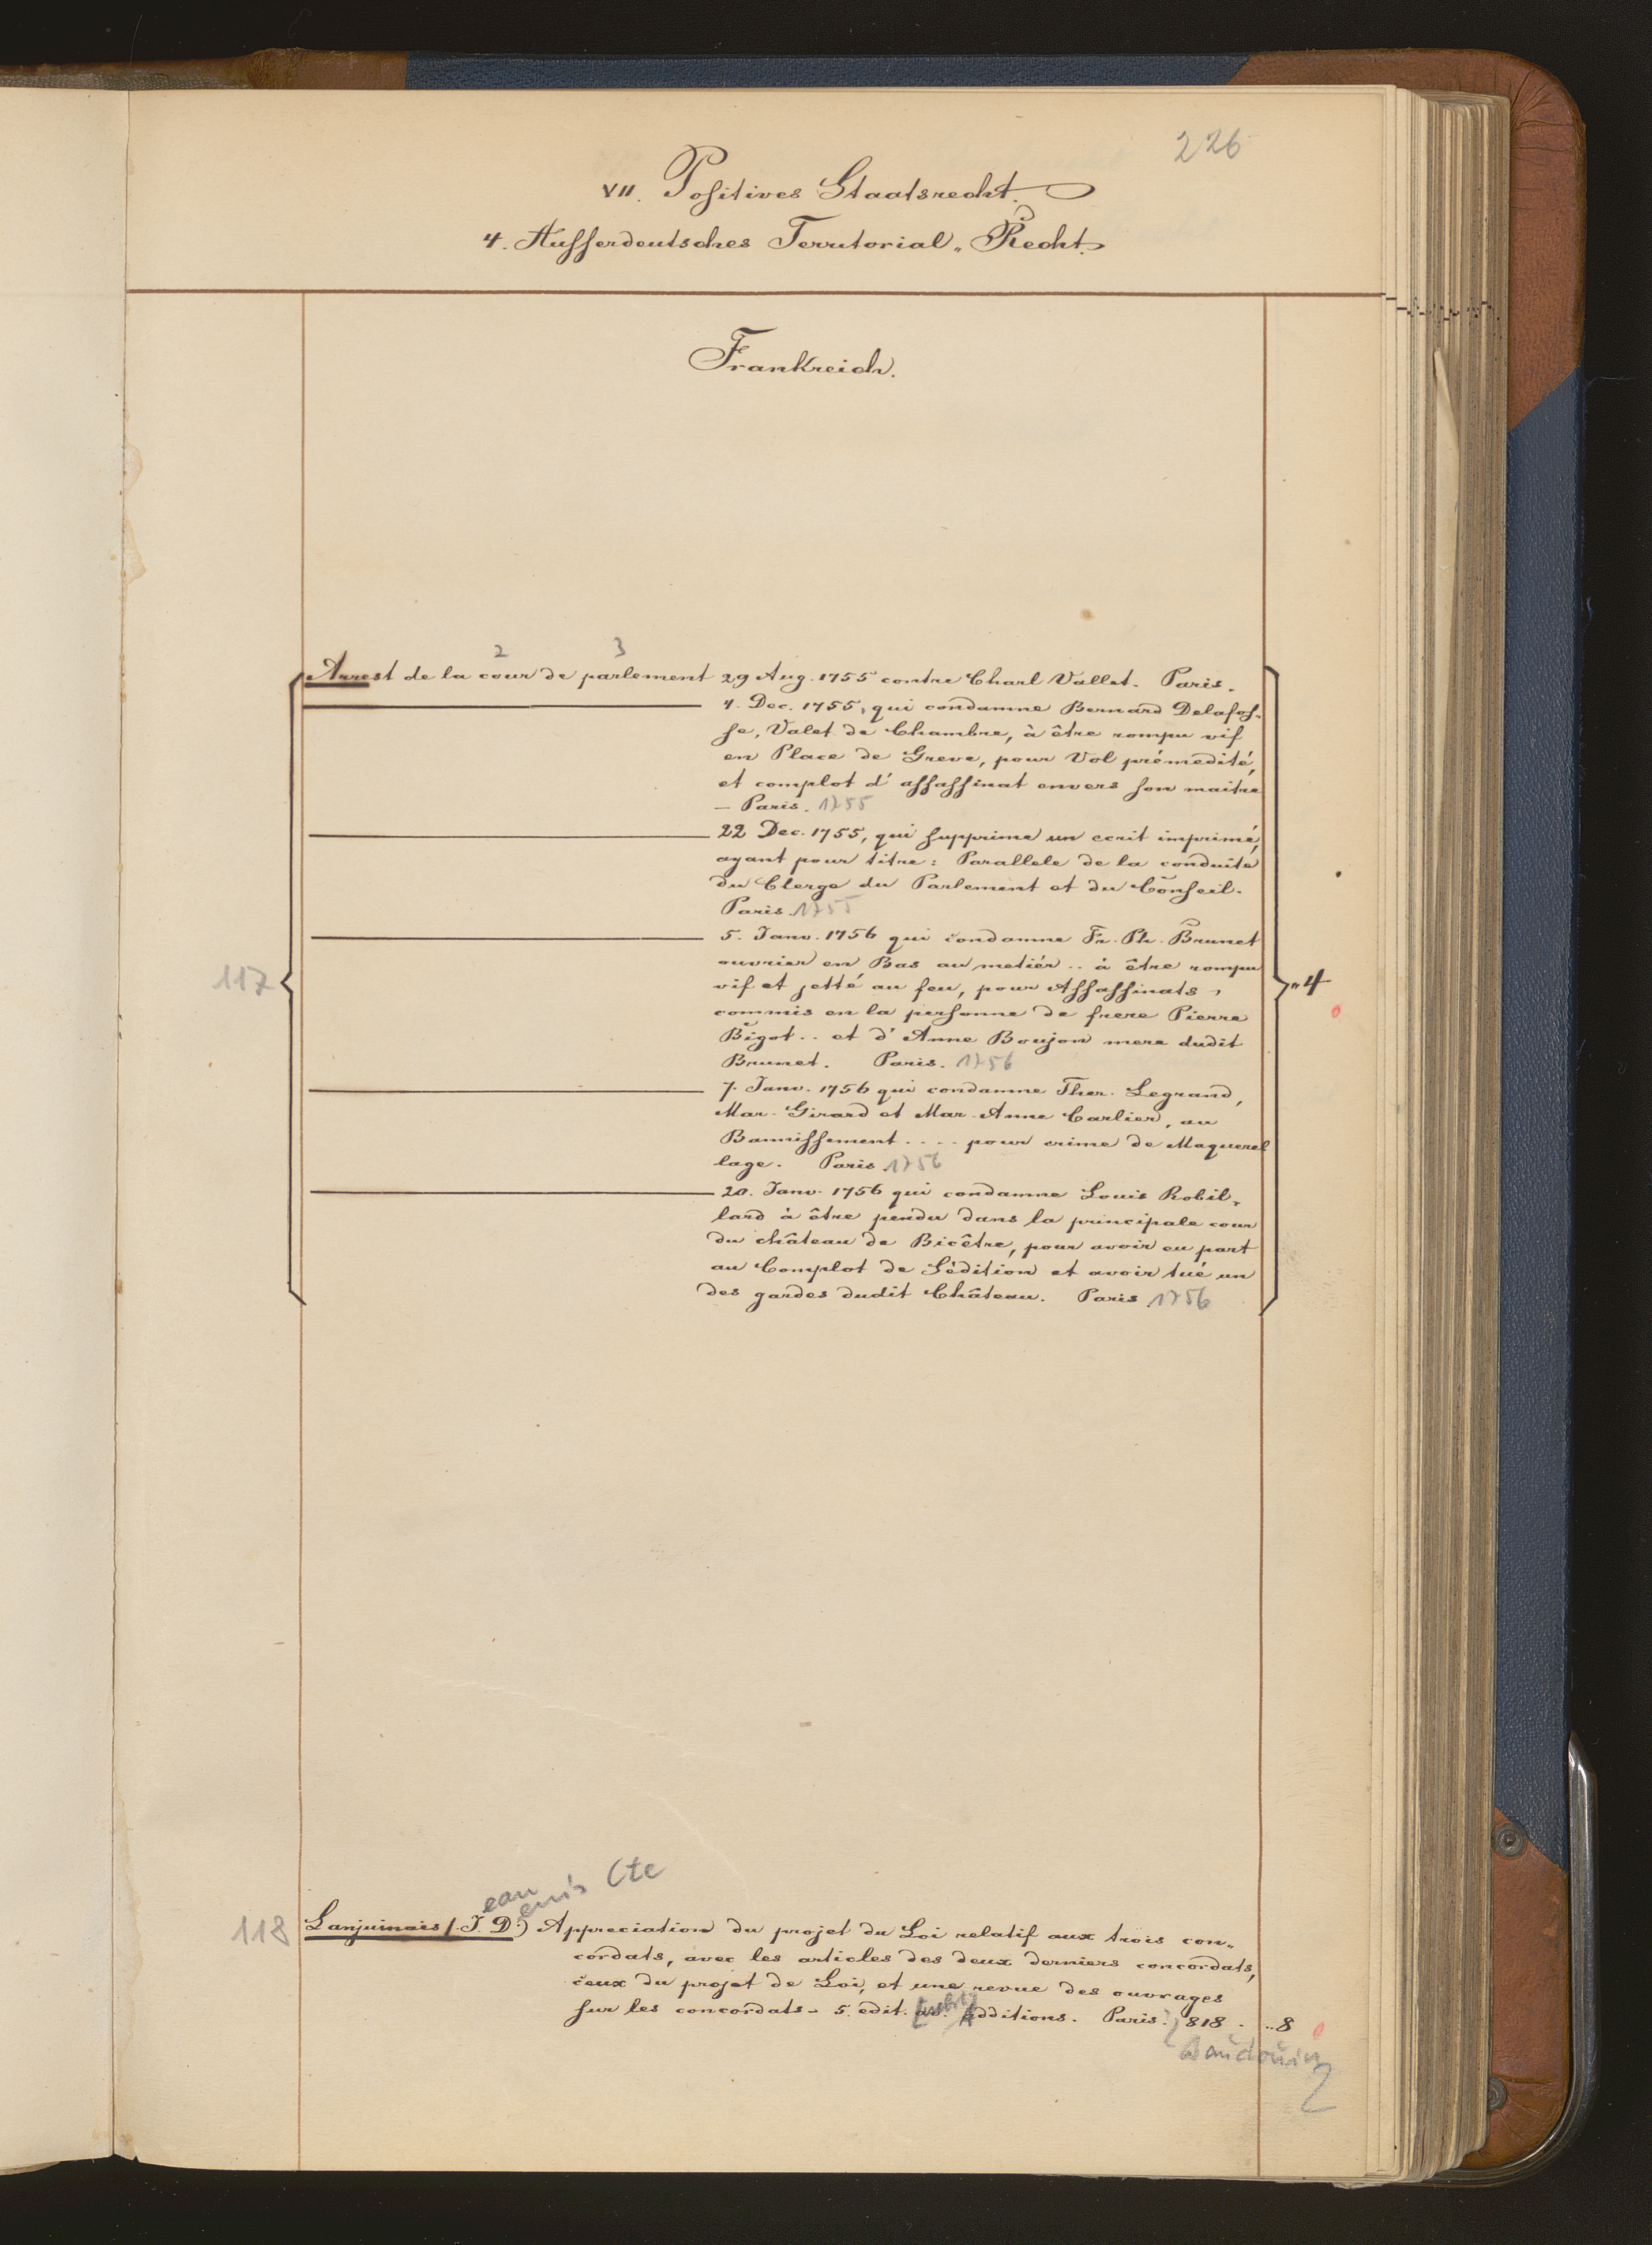 226
VII. Positives Staatsrecht.
4. Aufserdeutsches Territorial„Recht.
Frankreich.
2 3
Arrest de la cour de parlement 29 Aug. 1755 contre Charl Vallet. Paris.
4. Dec. 1755, qui condamne Bernard Delafos„
se, Valet de Chambre, à être rompu vif
en Place de Greve, pour Vol prémedité,
et complot d'assassinat envers son maitre
— Paris. 1755
22 Dec. 1755, qui supprime un ecrit imprimé,
ayant pour titre: Parallele de la conduite
du Clerge du Parlement et du Conseil.
Paris. 1755
5. Janv. 1756 qui condamne Fr. Ph. Brunet
ouvrier en Bas au metiér .. à être rompu
vif et jetté au feu, pour Assassinats,
117
„4
commis en la personne de frere Pierre
Bigot .. et d'Anne Boujon mere dudit
Brunet. Paris. 1756
7. Janv. 1756 qui condamne Ther. Legrand,
Mar. Girard et Mar. Anne Carlier, au
Bannissement .... pour crime de Maquerel
lage. Paris 1756
20. Janv. 1756 qui condamne Louis Robil„
lard à être pendu dans la principale cour
du château de Bicêtre, pour avoir eu part
au Complot de Sédition et avoir tué un
des gardes dudit Château. Paris 1756
ean enis Cte
118 Lanjuinais (J. D.) Appreciation du projet du Loi relatif aux trois con„
cordats, avec les articles des deux derniers concordats,
ceux du projet de Loi, et une revue des ouvrages
sur les concordats – 5. edit. av. additions. Paris. 818. „8
Baudouin
2